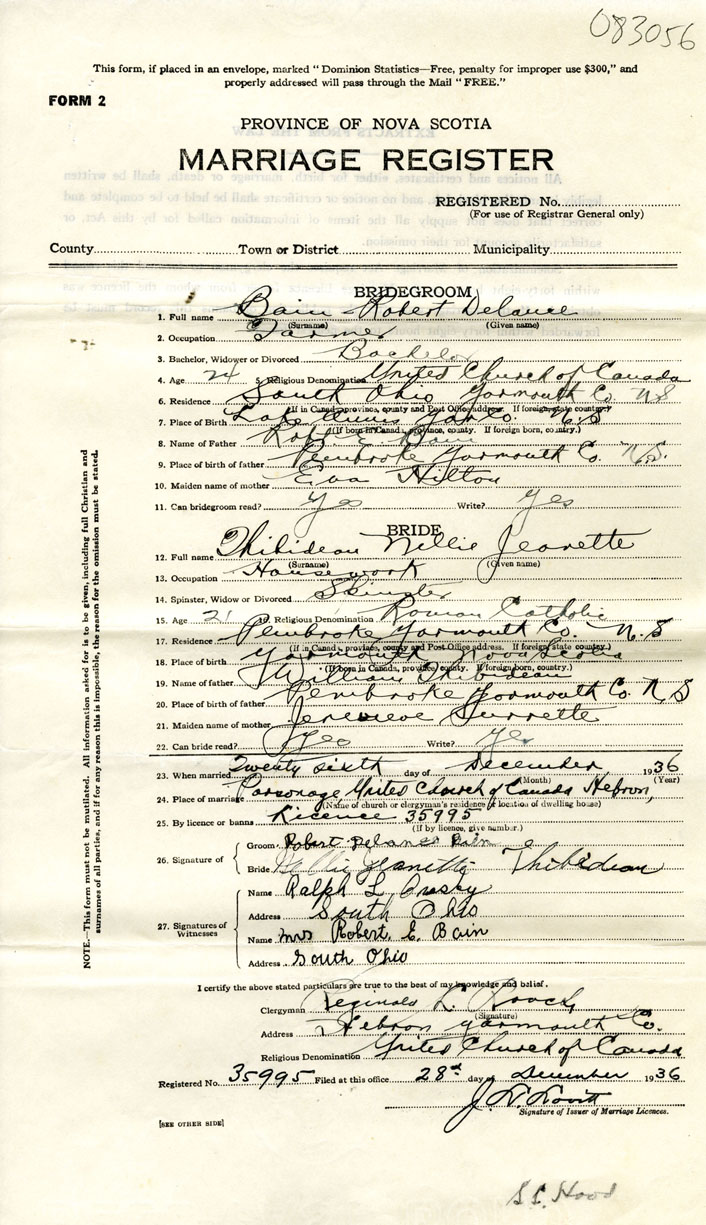 083056
This form, if placed in an envelope, marked "Dominion Statistics—Free, penalty for improper use $300," and
properly addressed will pass through the Mail "FREE."
FORM 2
PROVINCE OF NOVA SCOTIA
MARRIAGE REGISTER
REGISTERED No.
(For use of Registrar General only)
County Town or District Municipality
BRIDEGROOM
1. Full name Bain Robert Delance
(Surname) (Given name)
2. Occupation Farmer
3. Bachelor, Widower or Divorced Bachelor
4. Age 24 5. Religious Denomination United Church of Canada
6. Residence South Ohio Yarmouth Co. N S
(If in Canada, province, county and Post Office address. If foreign, state country.)
7. Place of Birth Lake Annis Yar. Co. N.S
(If born in Canada, province, county. If foreign born, country.)
8. Name of Father Robt E. Bain
9. Place of birth of father Pembroke Yarmouth Co. N.S.
10. Maiden name of mother Eva Hilton
11. Can bridegroom read? Yes Write? Yes
BRIDE
12. Full name Thibideau Nellie Jeanette
(Surname) (Given name)
13. Occupation House work
14. Spinster, Widow or Divorced Spinster
15. Age 21 16. Religious Denomination Roman Catholic
17. Residence Pembroke Yarmouth Co. N. S
(If in Canada, province, county and Post Office address. If foreign, state country.)
18. Place of birth Yarmouth Nova Scotia
(If born in Canada, province, county. If foreign born, country.)
19. Name of father William Thibideau
20. Place of birth of father Pembroke Yarmouth Co. N S
21. Maiden name of mother Jenevieve Surrette
22. Can bride read? Yes Write? Yes
23. When married Twenty sixth day of December 1936
(Month) (Year)
24. Place of marriage Parsonage, United Church of Canada Hebron,
(Name of church or clergyman's residence or location of dwelling house)
25. By licence or banns Licence 35995
(If by licence, give number.)
26. Signature of
Groom Robert Delance Bain
Bride Nellie Jeanette Thibideau
27. Signatures of Witnesses
Name Ralph L. Crosby
Address South Ohio
Name Mrs Robert. E. Bain
Address South Ohio
I certify the above stated particulars are true to the best of my knowledge and belief.
Clergyman Reginald L.
(Signature)
Address Hebron Yarmouth Co.
Religious Denomination United Church of Canada
Registered No. 35995 Filed at this office 28th day of December 1936
J.
Signature of Issuer of Marriage Licences.
[SEE OTHER SIDE]
S.L. Hood
NOTE.—This form must not be mutilated. All information asked for is to be given, including full Christian and
surnames of all parties, and if for any reason this is impossible, the reason for the omission must be stated.